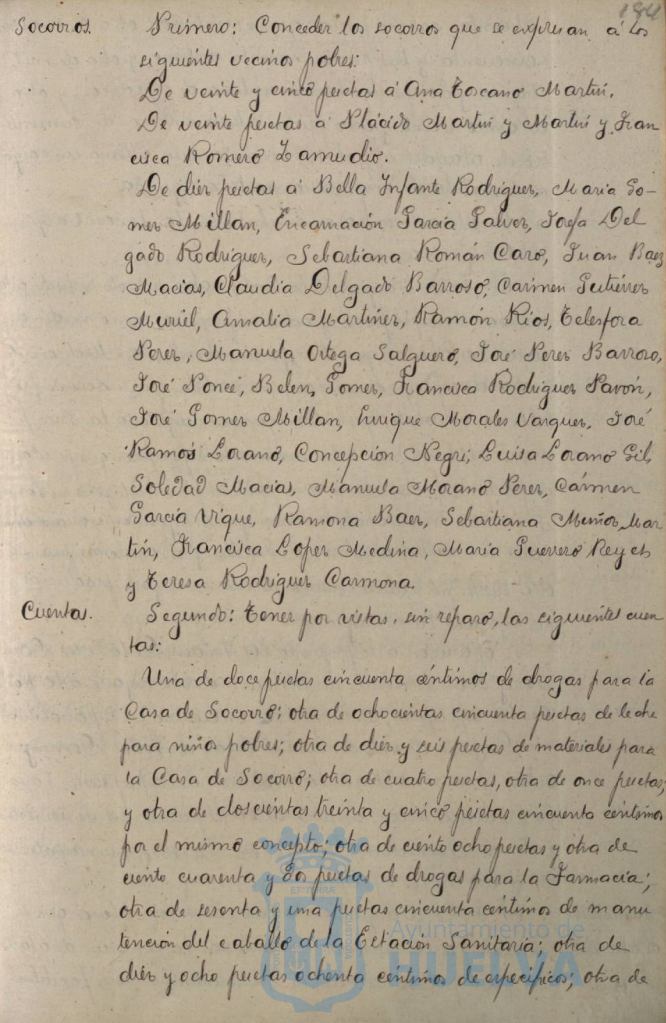 184
Socorros. Primero: Conceder los socorros que se expresan á los
siguientes vecinos pobres:
De veinte y cinco pesetas á Ana Toscano Martín.
De veinte pesetas á Plácido Martín y Martín y Fran
cisca Romero Zamudio.
De diez pesetas á Bella Infante Rodríguez, María Go-
mez Millan, Encarnación García Galvez, Josefa Del
gado Rodríguez, Sebastiana Román Caro, Juan Baez
Macías, Claudia Delgado Barroso, Carmen Gutiérrez
Muriel, Amalia Martínez, Ramón Ríos, Telesfora
Perez, Manuela Ortega Salguero, José Perez Barroso,
José Ponce, Belen Gomez, Francisca Rodríguez Pavón,
José Gomez Millan, Enrique Morales Vazquez, José
Ramos Lozano, Concepción Negri; Luisa Lozano Gil,
Soledad Macías, Manuela Morano Perez, Cármen
García Vique, Ramona Baez, Sebastiana Muñoz Mar
tín, Francisca Lopez Medina, María Guerrero Reyes
y Teresa Rodríguez Carmona.
Cuentas. Segundo: Tener por vistas, sin reparo, las siguientes cuen
tas:
Una de doce pesetas cincuenta céntimos de drogas para la
Casa de Socorro; otra de ochocientas cincuenta pesetas de leche
para niños pobres; otra de diez y seis pesetas de materiales para
la Casa de Socorro; otra de cuatro pesetas, otra de once pesetas;
y otra de doscientas treinta y cinco pesetas cincuenta céntimos
por el mismo concepto; otra de ciento ocho pesetas y otra de
ciento cuarenta y dos pesetas de drogas para la Farmacia;
otra de sesenta y una pesetas cincuenta céntimos de manu
tención del caballo de la Estación Sanitaria; otra de
diez y ocho pesetas ochenta céntimos de específicos; otra de
Ayuntamiento de
HUELVA